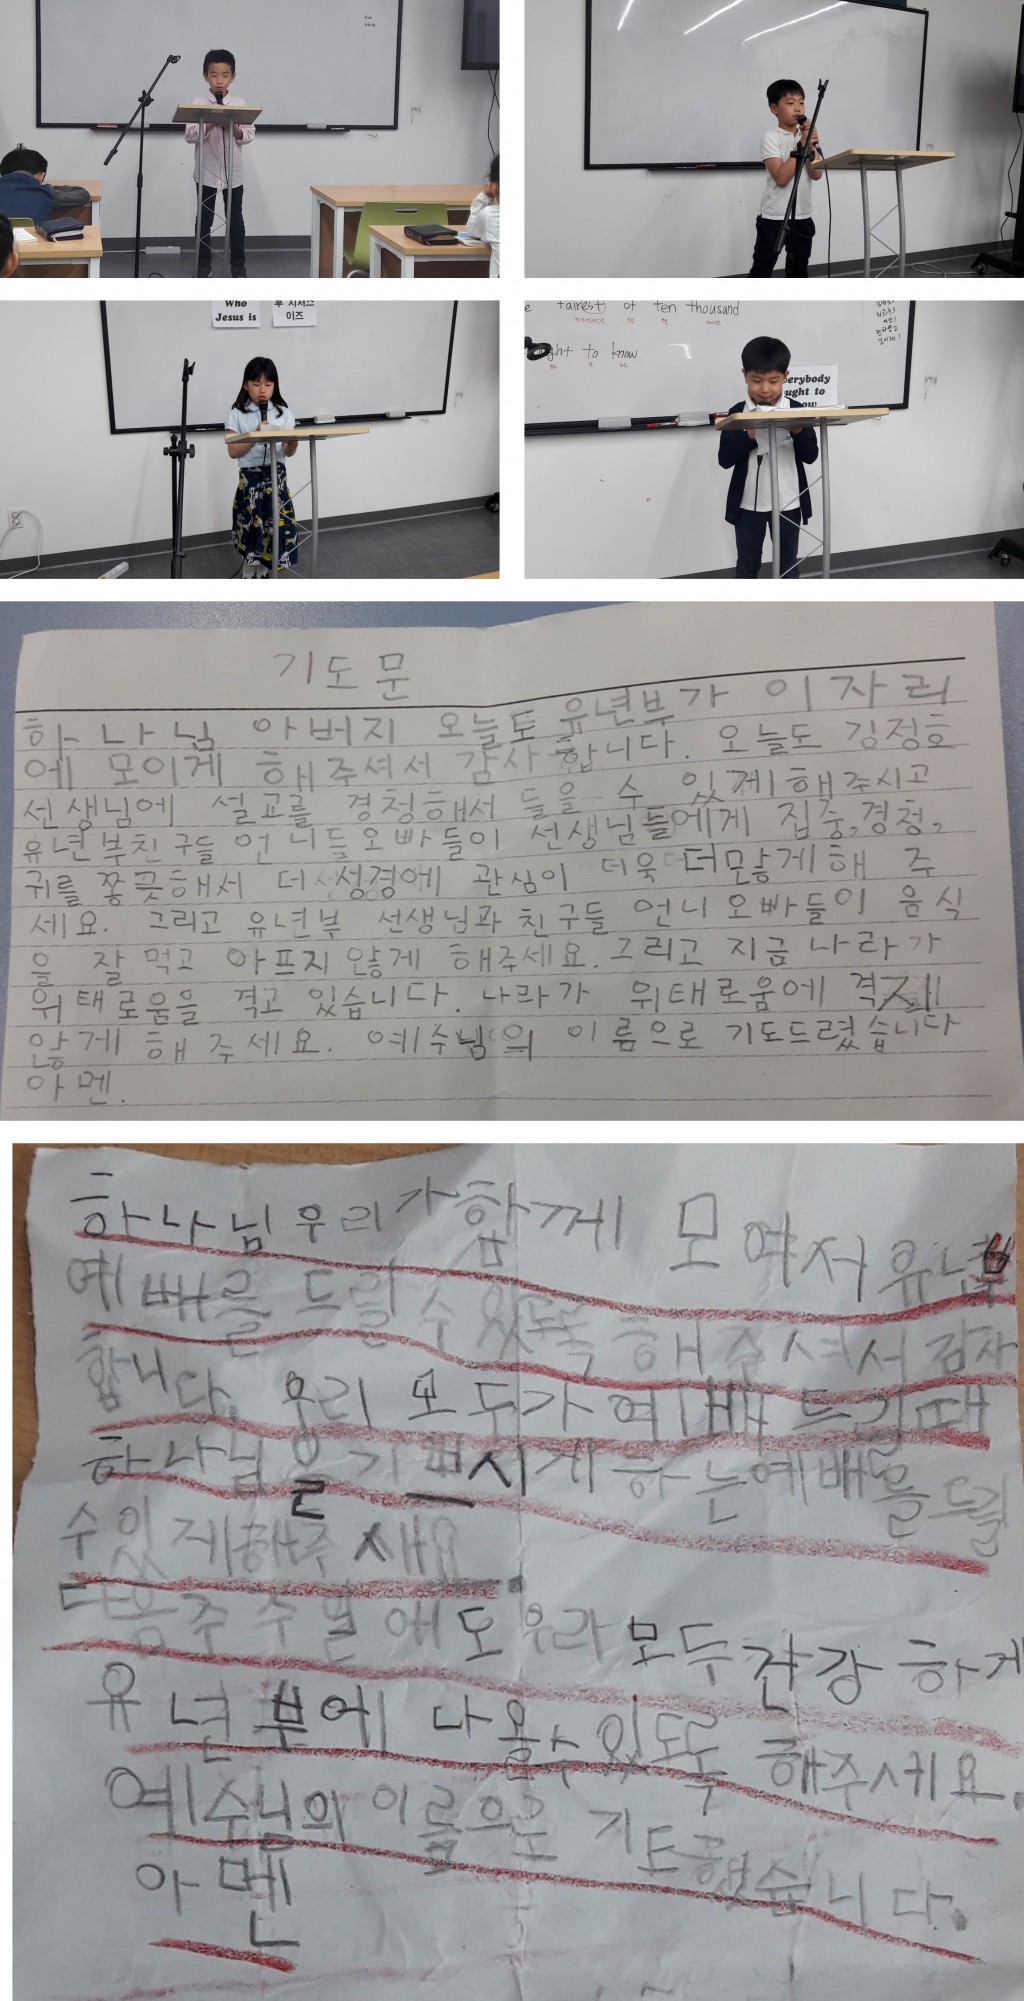 Who
Jesus is
이즈
fairest of ten thousand
to know
ought to
기도문
하나님 아버지 오늘도 유년부가 이 자리
에 모이게 해주셔서 감사합니다. 오늘도 김정호
선생님에 설교를 경청해서 들을 수 있게 해주시고
유년부친구들 언니들오빠들이 선생님들에게 집중,경청,
귀를 쫑끗해서 더 성경에 관심이 더욱 더모앟게 해 주
세요. 그리고 유년부 선생님과 친구들 언니오빠들이 음식
을 잘 먹고 아프지 안항게 해주세요. 그리고 지금 나라가
위태로움을 격고 있습니다. 나라가 위태로움에 격지
않게 해 주세요. 예수님의 이름으로 기도드렸습니다
아멘.
하나님 우리가 함께 모여서 유년부
예배를 드릴 수 있도록 해주셔서 감사
합니다. 우리 모두가 예배드릴때
하나님을 기쁘시게 하는예배를 드릴
수 있게해주새요.
다음주 주일에도 우리 모두 건강 하게
유년부에 나올수 있도록 해주세요.
예수님의 이름으로 기도 했습니다.
아멘